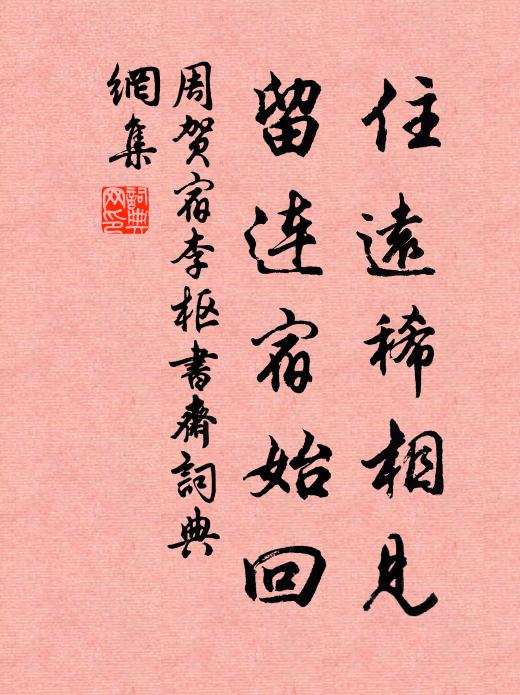 住遠稀相見
留連宿始回
周贺宿李枢書齋詞典
網集
詞典
网印